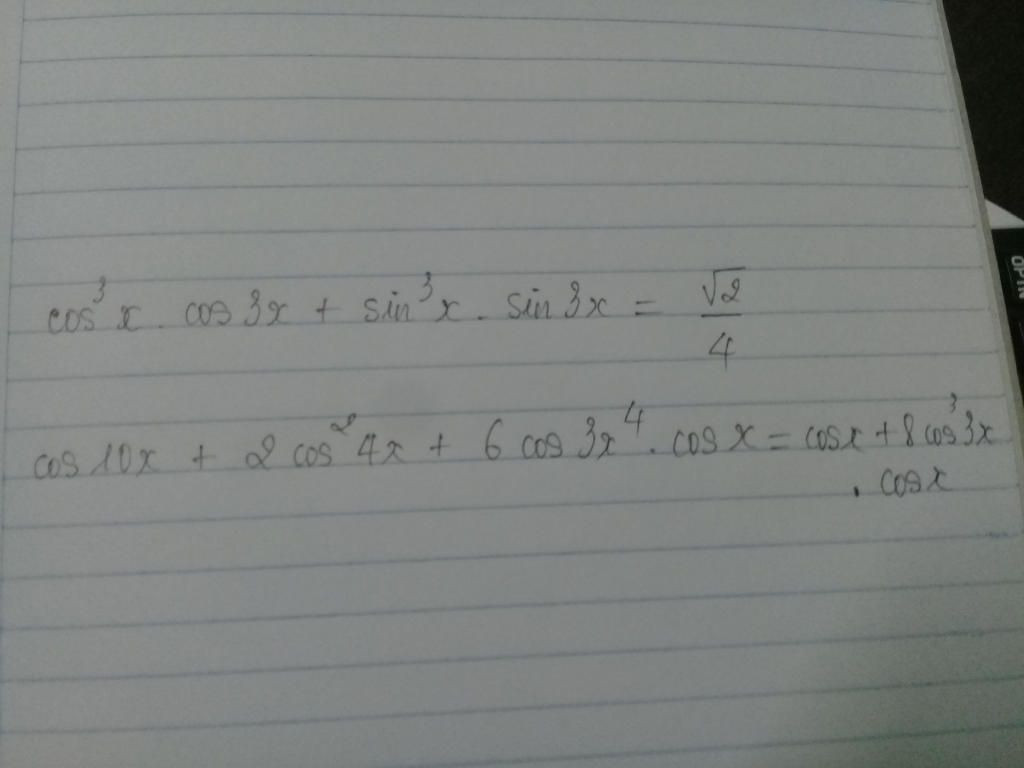 cos³x . cos 3x + sin³x . sin 3x = √2/4
cos 10x + 2 cos²4x + 6 cos 3x⁴ . cos x = cosx + 8 cos³3x
. cosx
OPTIN